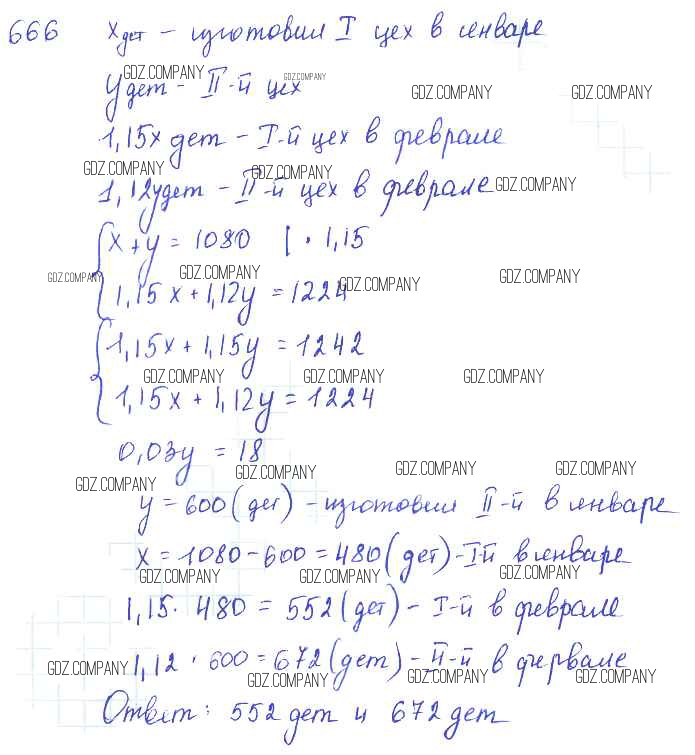 666 x дет – изготовил I цех в январе
GDZ.COMPANY GDZ.COMPANY
y дет – II-й цех GDZ.COMPANY GDZ.COMPANY
1,15x дет – I-й цех в феврале
GDZ.COMPANY GDZ.COMPANY
1,12y дет – II-й цех в феврале GDZ.COMPANY
x + y = 1080 | · 1,15
GDZ.COMPANY GDZ.COMPANY GDZ.COMPANY GDZ.COMPANY
1,15x + 1,12y = 1224
1,15x + 1,15y = 1242
GDZ.COMPANY GDZ.COMPANY GDZ.COMPANY
1,15x + 1,12y = 1224
0,03y = 18
GDZ.COMPANY GDZ.COMPANY GDZ.COMPANY GDZ.COMPANY
y = 600 (дет) – изготовил II-й в январе
x = 1080 – 600 = 480 (дет) – I-й в январе
GDZ.COMPANY GDZ.COMPANY GDZ.COMPANY
1,15 · 480 = 552 (дет) – I-й в феврале
1,12 · 600 = 672 (дет) – II-й в фервале
GDZ.COMPANY GDZ.COMPANY GDZ.COMPANY GDZ.COMPANY
Ответ: 552 дет и 672 дет